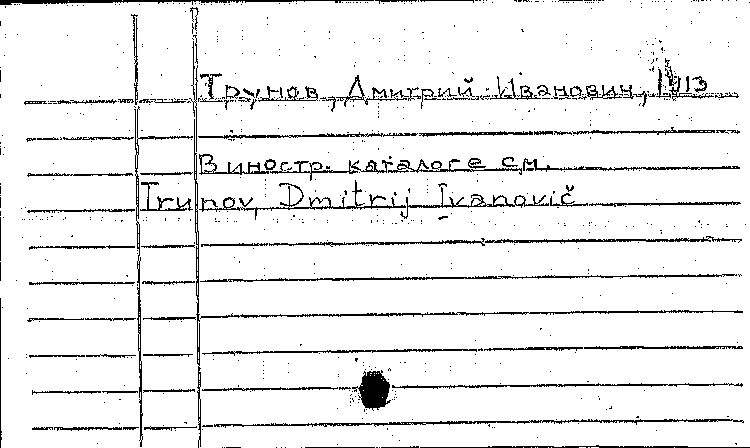 Трунов, Дмитрий Иванович,
В иностр. каталоге см.
Trunov, Dmitrij Ivanovič